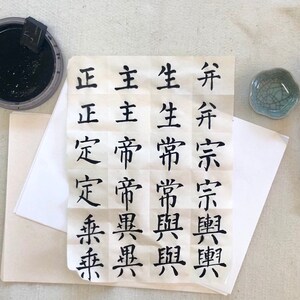 正主生弁
正主生弁
定帝常宗
定帝常宗
乗異與輿
乗異與輿